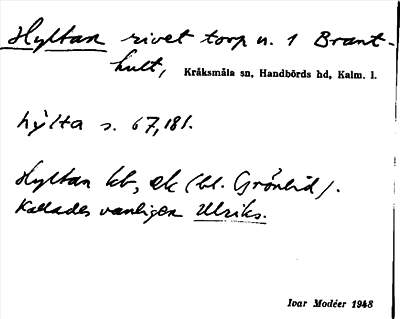 Hyltan rivet torp u. 1 Brant-
hult, Kråksmåla sn, Handbörds hd, Kalm. l.
hylta s. 67, 181.
Hyltan kb, ek (bl. Grönlid).
Kallades vanligen Ulriks.
Ivar Modéer 1948